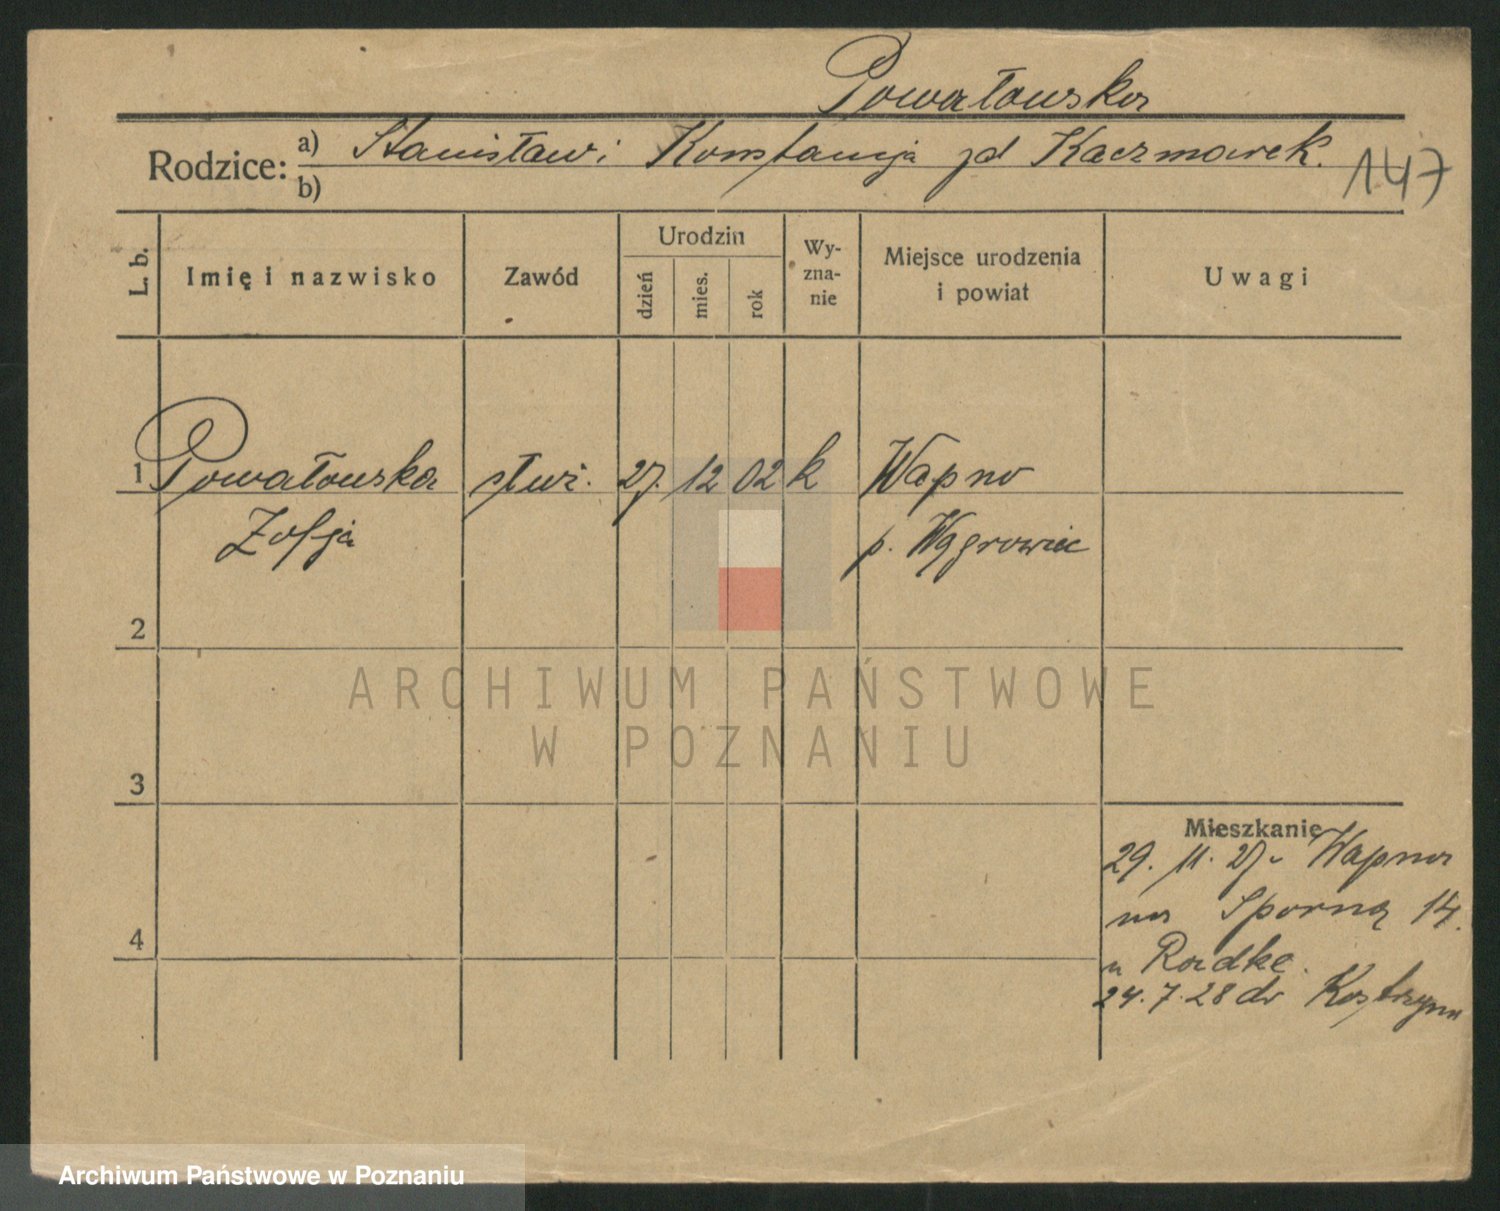 Powałowska
Rodzice: a) Stanisław i Konstancja zd Kaczmarek.
b)
147
L. b.
Imię i nazwisko
Zawód
Urodzin
dzień
mies.
rok
Wy-
zna-
nie
Miejsce urodzenia
i powiat
Uwagi
1 Powałowska służ. 27. 12 02 k Wapno
Zofja p. Wągrowiec
2
3
4
Mieszkanie
29. 11. 27. Wapna
na Sporną 14.
u Radke.
24. 7. 28 do Kostrzyn
ARCHIWUM PAŃSTWOWE
W POZNANIU
Archiwum Państwowe w Poznaniu